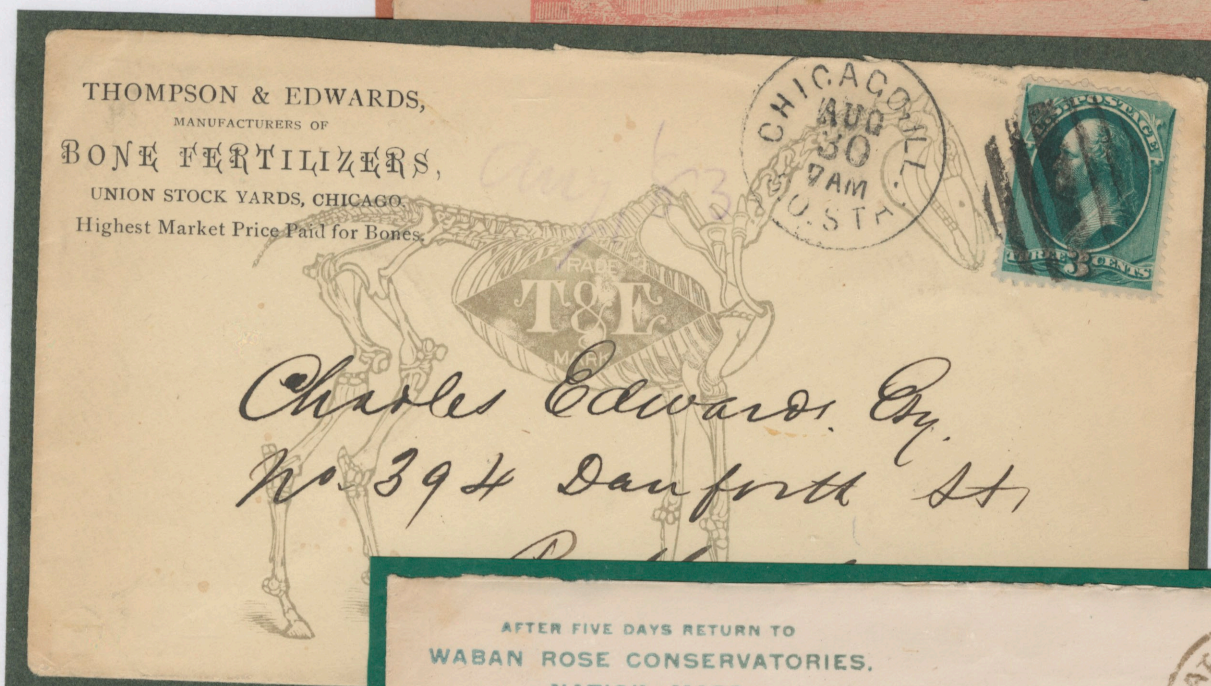 THOMPSON & EDWARDS,
MANUFACTURERS OF
BONE FERTILIZERS,
UNION STOCK YARDS, CHICAGO.
Highest Market Price Paid for Bones.
CHICAGO, ILL.
AUG
30
7AM
SO. STA.
U.S. POSTAGE
THREE 3 CENTS
TRADE
T&E
MARK
Charles Edwards. Esq.
No. 394 Danforth St,
AFTER FIVE DAYS RETURN TO
WABAN ROSE CONSERVATORIES.